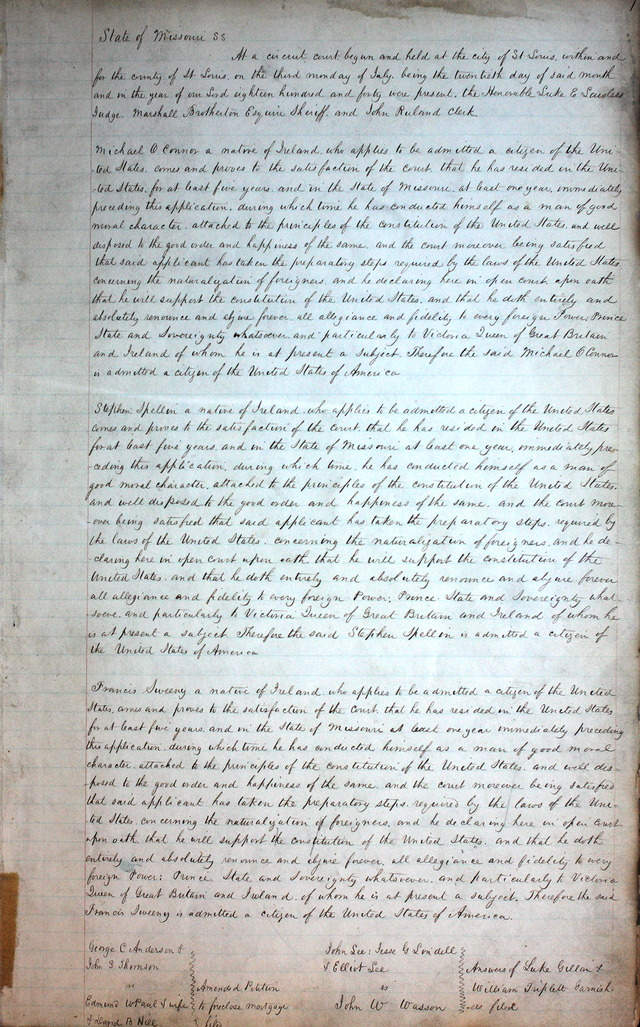 State of Missouri SS
At a circuit court begun and held at the city of St Louis, within and
for the county of St Louis, on the third monday of July, being the twentieth day of said month
and in the year of our Lord eighteen hundred and forty were present, the Honorable Luke E Lawless
Judge, Marshall Brotherton Esquire Sheriff, and John Ruland Clerk
Michael O Connor a native of Ireland, who applies to be admitted a citizen of the Uni-
-ted States, comes and proves to the satisfaction of the court, that he has resided in the Uni-
-ted States, for at least five years, and in the State of Missouri, at least one year, immediately
preceding this application, during which time he has conducted himself as a man of good
moral character, attached to the principles of the constitution of the United States, and well
disposed to the good order and happiness of the same, and the court moreover being satisfied
that said applicant has taken the preparatory steps required by the laws of the United States
concerning the naturalization of foreigners, and he declaring here in open court upon oath
that he will support the constitution of the United States, and that he doth entirely and
absolutely renounce and abjure forever all allegiance and fidelity to every foreign Power, Prince
State and Sovereignty whatsoever and particularly to Victoria Queen of Great Britain
and Ireland of whom he is at present a subject. Therefore the said Michael O'Connor
is admitted a citizen of the United States of America
Stephen Spellin a native of Ireland, who applies to be admitted a citizen of the United States
comes and proves to the satisfaction of the Court, that he has resided in the United States
for at least five years, and in the State of Missouri at least one year, immediately pre-
ceding this application, during which time, he has conducted himself as a man of
good moral character, attached to the principles of the constitution of the United States,
and well disposed to the good order and happiness of the same, and the court more-
-over being satisfied that said applicant has taken the preparatory steps, required by
the laws of the United States, concerning the naturalization of foreigners, and he de-
-claring here in open court upon oath, that he will support the constitution of the
United States, and that he doth entirely and absolutely renounce and abjure forever
all allegiance and fidelity to every foreign Power, Prince, State and Sovereignty what-
soever, and particularly to Victoria Queen of Great Britain and Ireland of whom he
is at present a subject. Therefore the said Stephen Spellin is admitted a citizen of
the United States of America
Francis Sweeny a native of Ireland, who applies to be admitted a citizen of the United
States, comes and proves to the satisfaction of the Court, that he has resided in the United States
for at least five years, and in the State of Missouri at least one year immediately preceding
this application, during which time he has conducted himself as a man of good moral
character, attached to the principles of the constitution of the United States, and well dis-
-posed to the good order and happiness of the same, and the court moreover being satisfied
that said applicant has taken the preparatory steps, required by the laws of the Uni-
ted States, concerning the naturalization of foreigners, and he declaring here in open court
upon oath, that he will support the constitution of the United States, and that he doth
entirely and absolutely renounce and abjure forever, all allegiance and fidelity to every
foreign Power, Prince State and Sovereignty whatsoever, and particularly to Victoria
Queen of Great Britain and Ireland, of whom he is at present a subject. Therefore the said
Francis Sweeny is admitted a citizen of the United States of America.
George C. Anderson &
John S. Thomson
"
Edmund W Paul & wife
& David B
Amended Petition
to foreclose mortgage
filed
John Lee, Jesse G Lindell
& Elliot Lee
"
John W Wasson
Answers of Luke &
William Triplett Garnish-
-ees filed